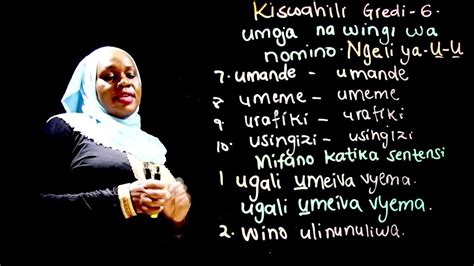 Kiswahili Gredi-6.
umoja na wingi wa
nomino. Ngeli ya-U-U
7. umande - umande
8. umeme - umeme
9. urafiki - urafiki
10. usingizi - usingizi
Mifano katika sentensi
1. ugali umeiva vyema.
ugali umeiva vyema.
2. wino ulinunuliwa.